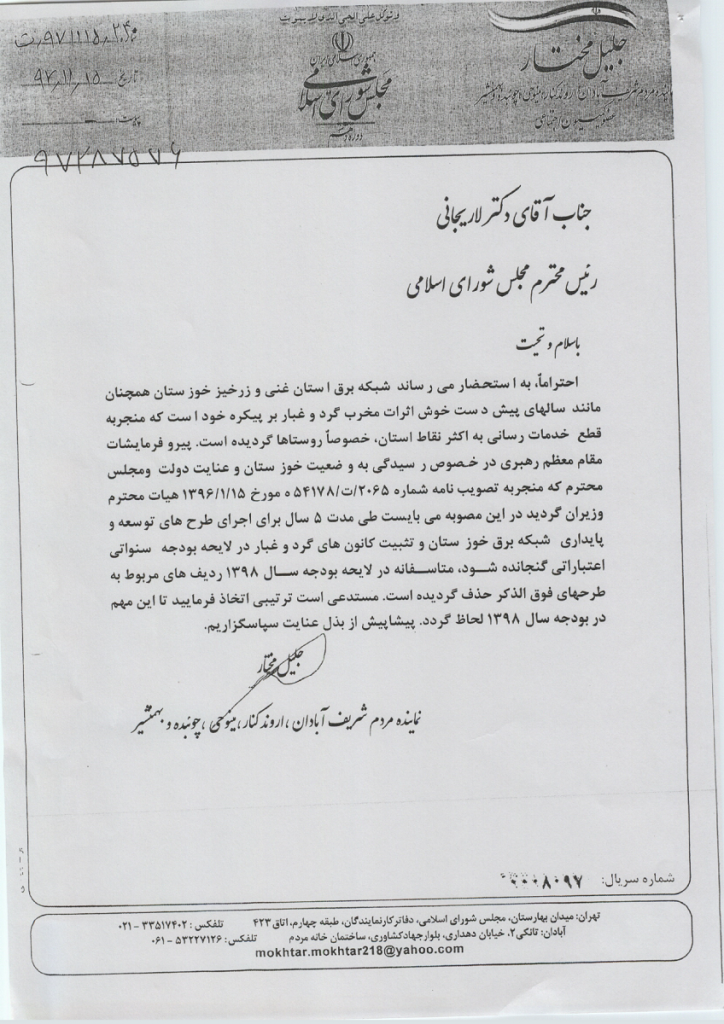 و توکل علی الحی الذی لا یموت
جمهوری اسلامی ایران
مجلس شورای اسلامی
دوره دهم
جلیل مختار
نماینده مردم شریف آبادان، اروندکنار، مینوحی، چوئبده و بهمنشیر
عضو کمیسیون اجتماعی
تاریخ ۹۷/۱۱/۱۵
پیوست:
۹۷۲۸۷۵۷۶
جناب آقای دکتر لاریجانی
رئیس محترم مجلس شورای اسلامی
باسلام و تحیت
احتراماً، به استحضار می رساند شبکه برق استان غنی و زرخیز خوزستان همچنان
مانند سالهای پیش دست خوش اثرات مخرب گرد و غبار بر پیکره خود است که منجربه
قطع خدمات رسانی به اکثر نقاط استان، خصوصاً روستاها گردیده است. پیرو فرمایشات
مقام معظم رهبری در خصوص رسیدگی به و ضعیت خوزستان و عنایت دولت ومجلس
محترم که منجربه تصویب نامه شماره ۲۰۶۵/ت/۵۴۱۷۸ ه مورخ ۱۳۹۶/۱/۱۵ هیات محترم
وزیران گردید در این مصوبه می بایست طی مدت ۵ سال برای اجرای طرح های توسعه و
پایداری شبکه برق خوزستان و تثبیت کانون های گرد و غبار در لایحه بودجه سنواتی
اعتباراتی گنجانده شود، متاسفانه در لایحه بودجه سال ۱۳۹۸ ردیف های مربوط به
طرحهای فوق الذکر حذف گردیده است. مستدعی است ترتیبی اتخاذ فرمایید تا این مهم
در بودجه سال ۱۳۹۸ لحاظ گردد. پیشاپیش از بذل عنایت سپاسگزاریم.
جلیل مختار
نماینده مردم شریف آبادان، اروندکنار، مینوحی، چوئبده و بهمنشیر
شماره سریال: ۰۰۰۸۰۹۷
تهران: میدان بهارستان، مجلس شورای اسلامی، دفاترکارنمایندگان، طبقه چهارم، اتاق ۴۲۳ تلفکس: ۳۳۵۱۷۴۰۲ - ۰۲۱
آبادان: تانکی۲، خیابان دهداری، بلوارجهادکشاورزی، ساختمان خانه مردم تلفکس: ۵۳۲۲۷۱۲۶ - ۰۶۱
mokhtar.mokhtar218@yahoo.com